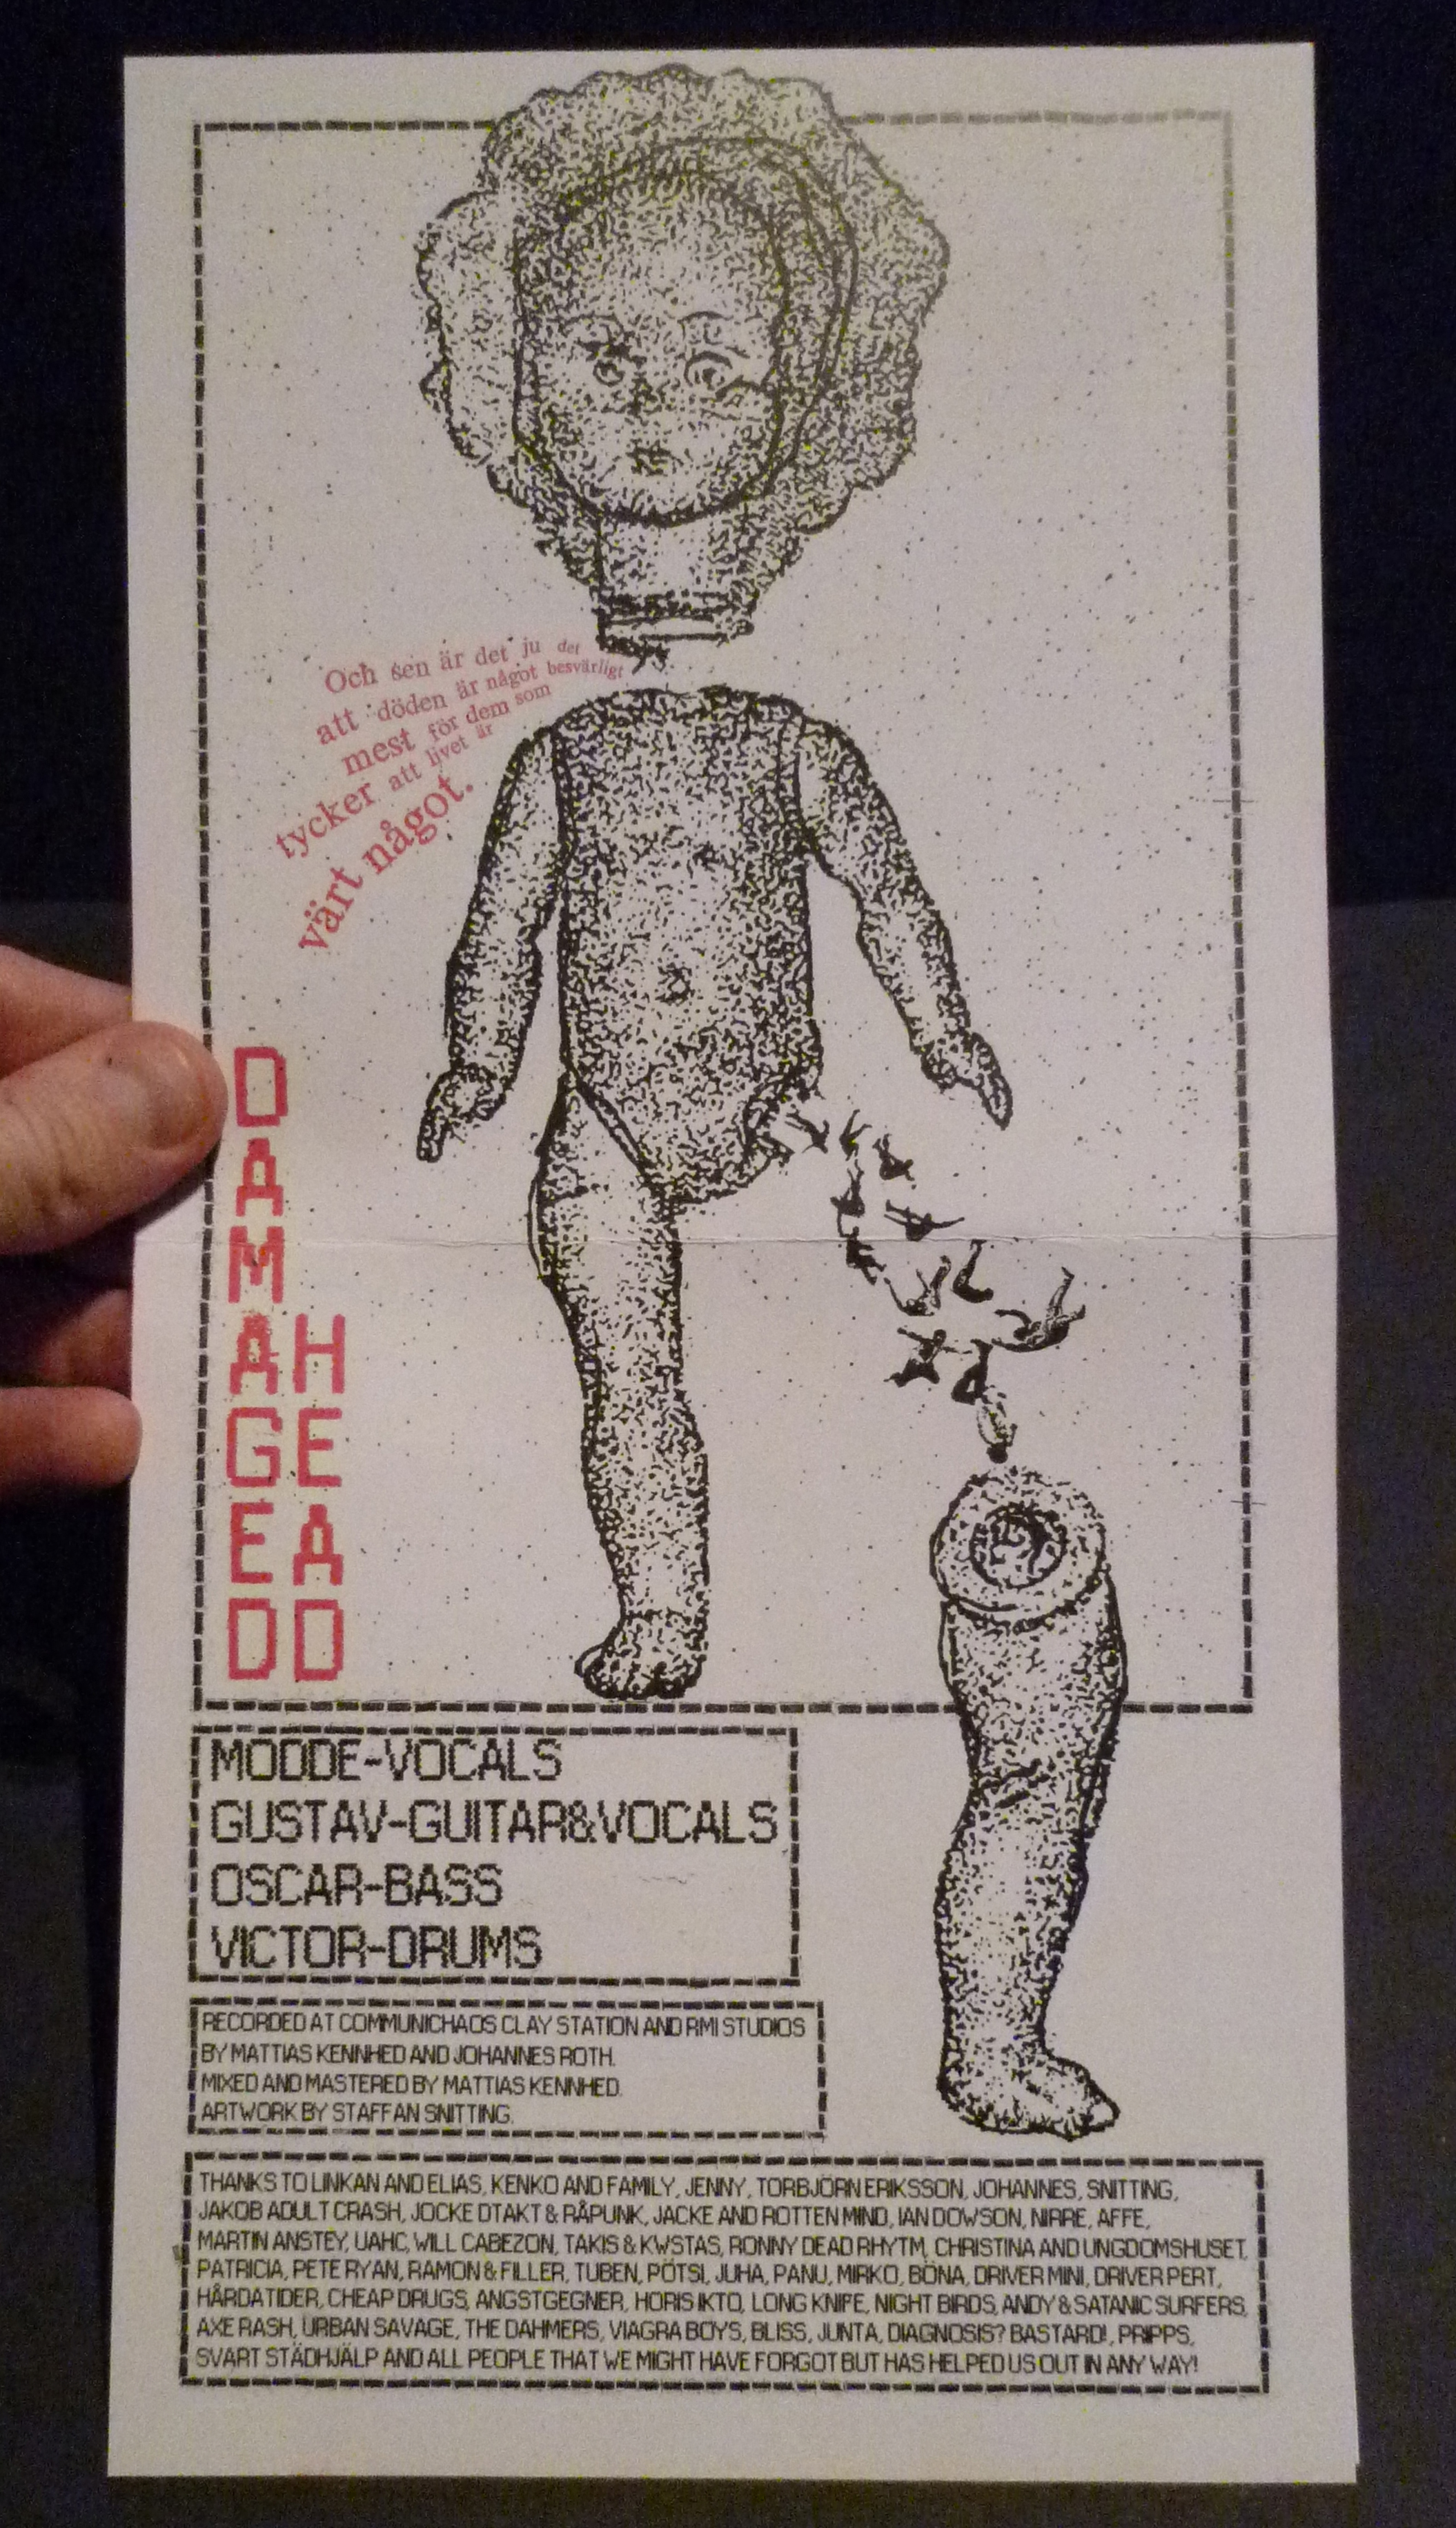 Och sen är det ju det
att döden är något besvärligt
mest för dem som
tycker att livet är
värt något.
DAMAGED
HEAD
MODDE-VOCALS
GUSTAV-GUITAR&VOCALS
OSCAR-BASS
VICTOR-DRUMS
RECORDED AT COMMUNICHAOS CLAY STATION AND RMI STUDIOS
BY MATTIAS KENNHED AND JOHANNES ROTH.
MIXED AND MASTERED BY MATTIAS KENNHED.
ARTWORK BY STAFFAN SNITTING.
THANKS TO LINKAN AND ELIAS, KENKO AND FAMILY, JENNY, TORBJÖRN ERIKSSON, JOHANNES, SNITTING,
JAKOB ADULT CRASH, JOCKE DTAKT & RÅPUNK, JACKE AND ROTTEN MIND, IAN DOWSON, NIRRE, AFFE,
MARTIN ANSTEY, UAHC, WILL CABEZON, TAKIS & KWSTAS, RONNY DEAD RHYTM, CHRISTINA AND UNGDOMSHUSET,
PATRICIA, PETE RYAN, RAMON & FILLER, TUBEN, PÖTSI, JUHA, PANU, MIRKO, BÖNA, DRIVER MINI, DRIVER PERT,
HÅRDA TIDER, CHEAP DRUGS, ANGSTGEGNER, HORIS IKTO, LONG KNIFE, NIGHT BIRDS, ANDY & SATANIC SURFERS,
AXE RASH, URBAN SAVAGE, THE DAHMERS, VIAGRA BOYS, BLISS, JUNTA, DIAGNOSIS? BASTARD!, PRIPPS,
SVART STÄDHJÄLP AND ALL PEOPLE THAT WE MIGHT HAVE FORGOT BUT HAS HELPED US OUT IN ANY WAY!